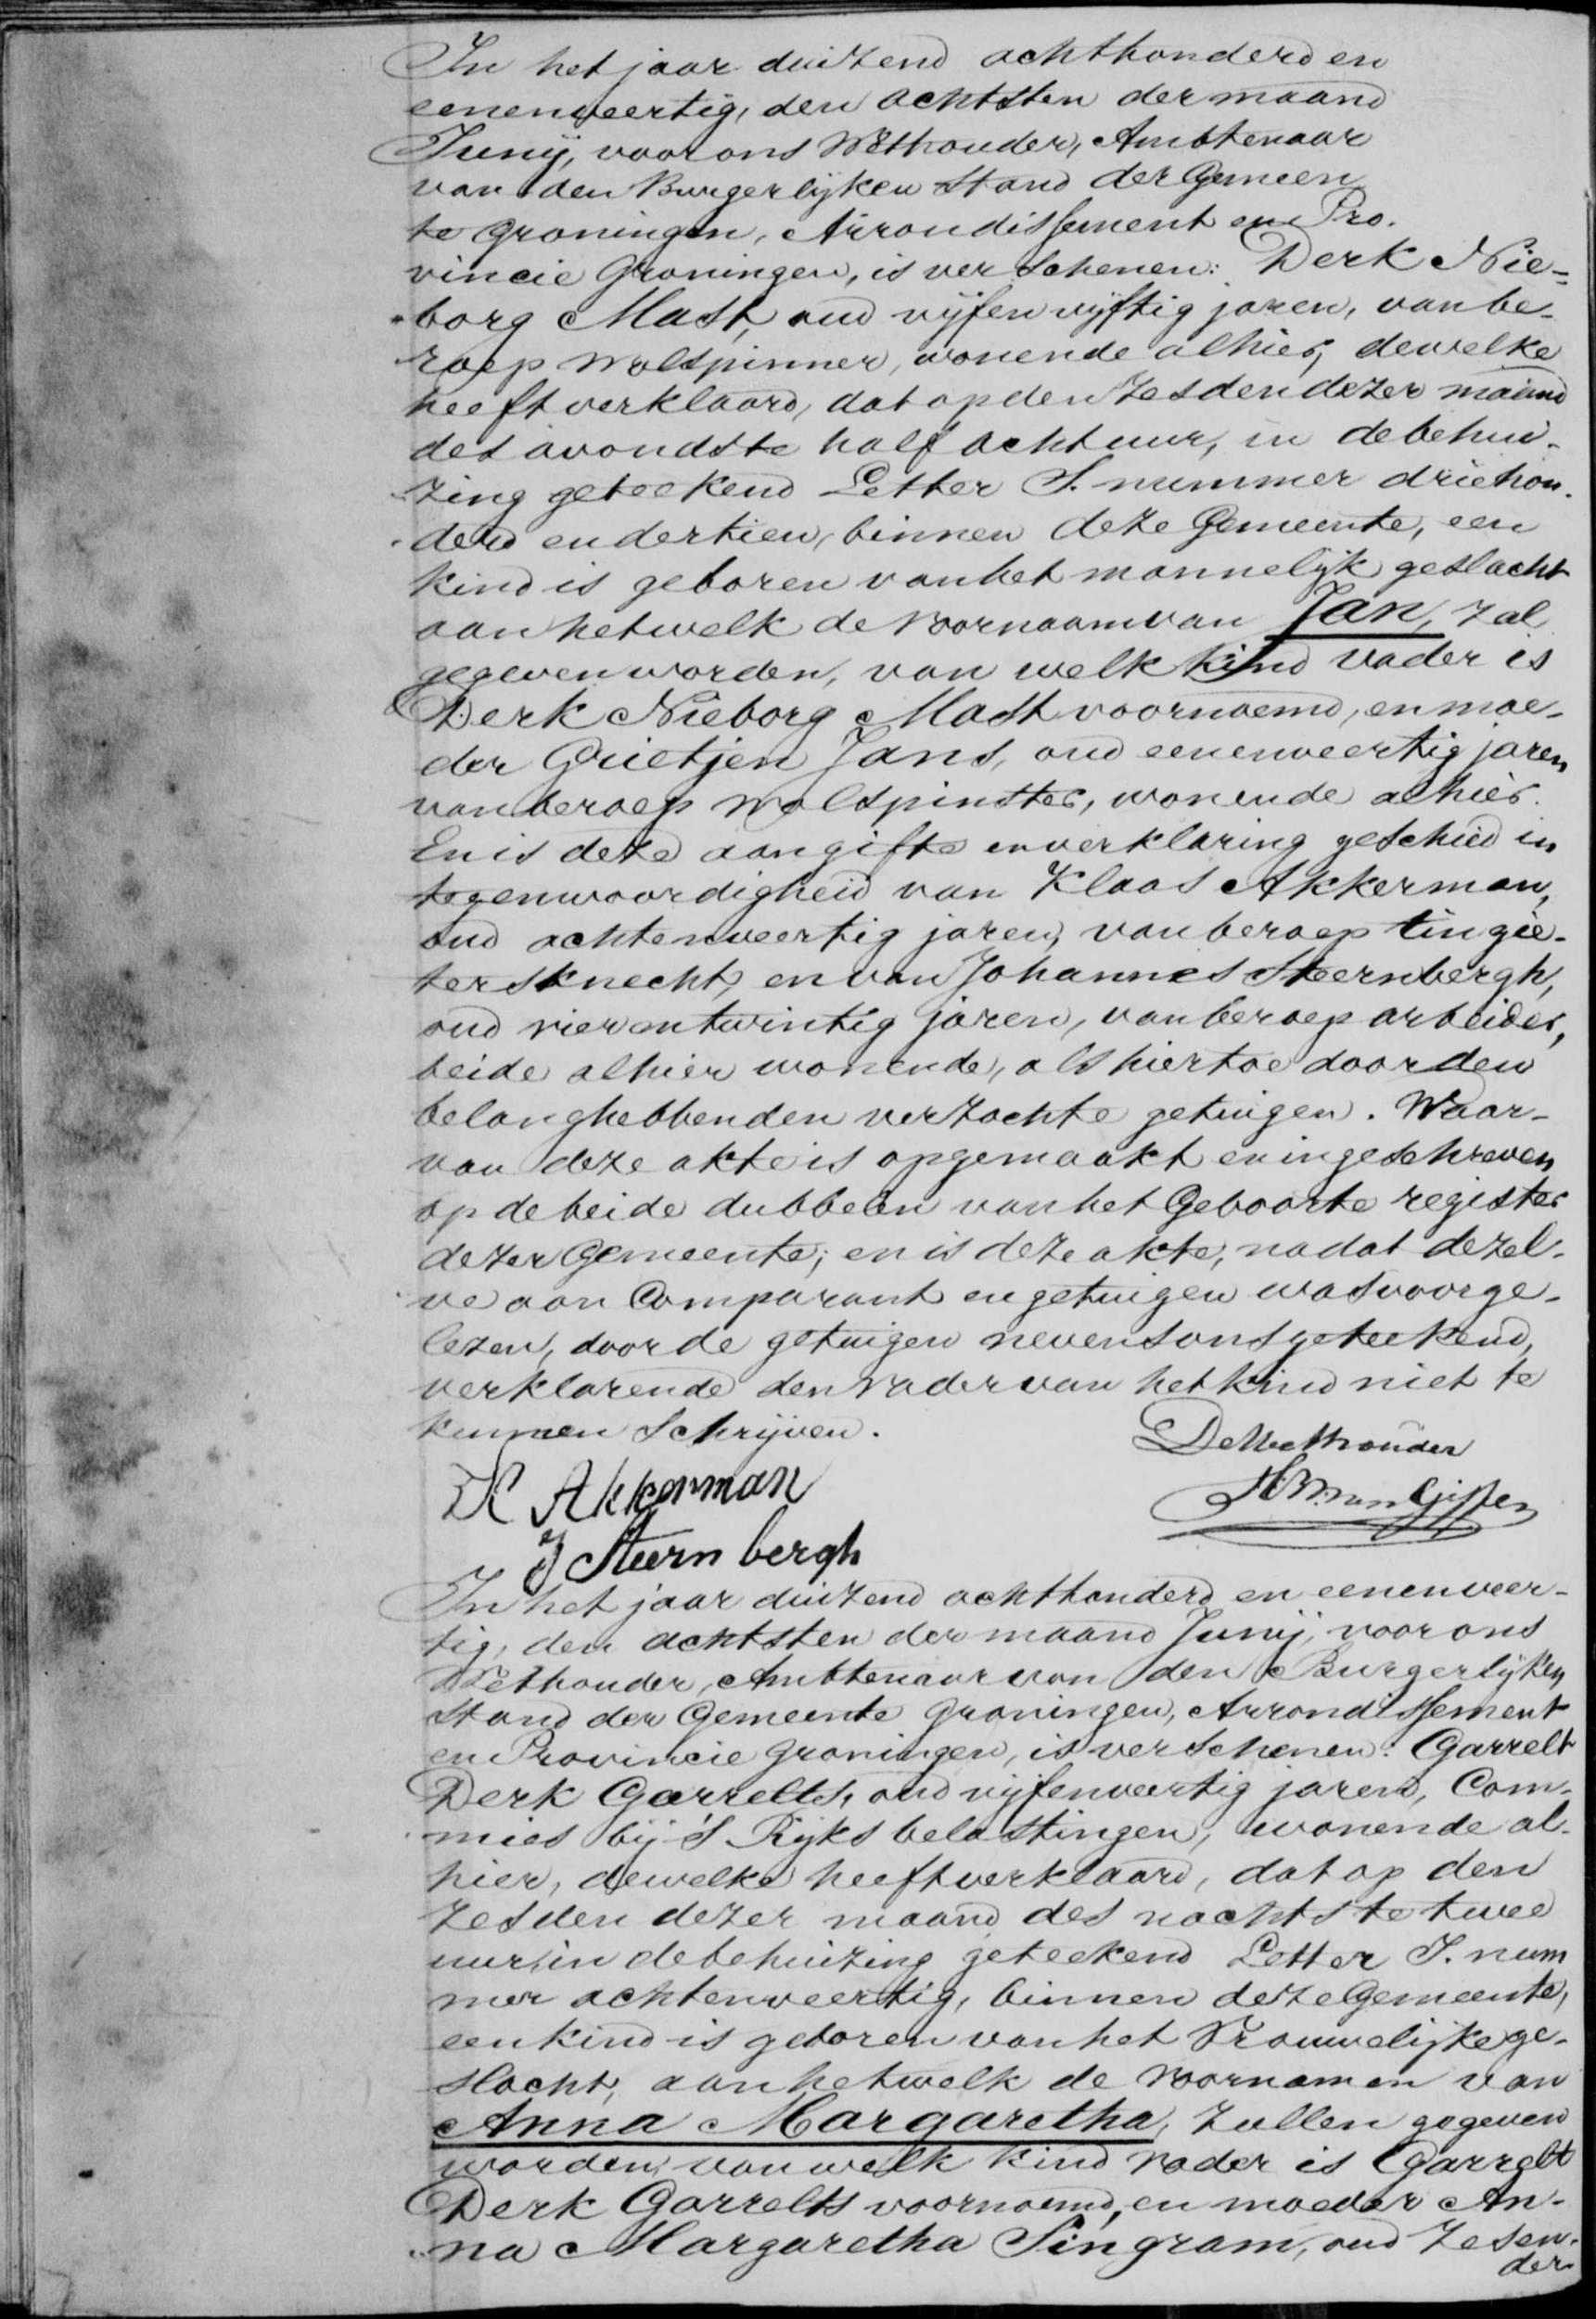 In het jaar duizend achthonderd en
eenenveertig, den achtsten der maand
Junij, voor ons Wethouder, Ambtenaar
van den Burgerlijken Stand der Gemeen
te Groningen, Arrondissement en Pro-
vincie Groningen, is verschenen: Derk Nie-
borg Mast, oud vijfenvijftig jaren, van be-
roep wolspinner, wonende alhier, dewelke
heeft verklaard, dat op den zesden dezer maand
des avonds te half acht uur, in de behui-
zing geteekend Letter S. nummer driehon-
derd en dertien, binnen deze Gemeente, een
kind is geboren van het mannelijk geslacht
aan hetwelk de voornaam van Jan, zal
gegeven worden, van welk kind vader is
Derk Nieborg Mast voornoemd, en moe-
der Grietjen Jans, oud eenenveertig jaren
van beroep wolspinster, wonende alhier.
En is deze aangifte en verklaring geschied in
tegenwoordigheid van Klaas Akkerman,
oud achtenveertig jaren, van beroep tingie-
tersknecht, en van Johannes Steernbergh,
oud vierentwintig jaren, van beroep arbeider,
beide alhier wonende, als hiertoe door den
belanghebbenden verzochte getuigen. Waar-
van deze akte is opgemaakt en ingeschreven
op de beide dubbelen van het Geboorte register
dezer Gemeente; en is deze akte, nadat dezel-
ve aan Comparant en getuigen was voorge-
lezen, door de getuigen nevens ons geteekend,
verklarende den vader van het kind niet te
kunnen Schrijven.
De Wethouder
K Akkerman
J Steernbergh
In het jaar duizend achthonderd en eenenveer-
tig, den achtsten der maand Junij, voor ons
Wethouder, Ambtenaar van den Burgerlijken
Stand der Gemeente Groningen, Arrondissement
en Provincie Groningen, is verschenen: Garrelt
Derk Garrelts, oud vijfenveertig jaren, Com-
mies bij 's Rijks belastingen, wonende al-
hier, dewelke heeft verklaard, dat op den
zesden dezer maand des nachts te twee
uur, in de behuizing geteekend Letter S. num
mer achtenveertig, binnen deze Gemeente,
een kind is geboren van het Vrouwelijke ge-
slacht, aan hetwelk de voornamen van
Anna Margaretha, zullen gegeven
worden, van welk kind vader is Garrelt
Derk Garrelts voornoemd, en moeder An-
na Margaretha Singram, oud zesen-
der